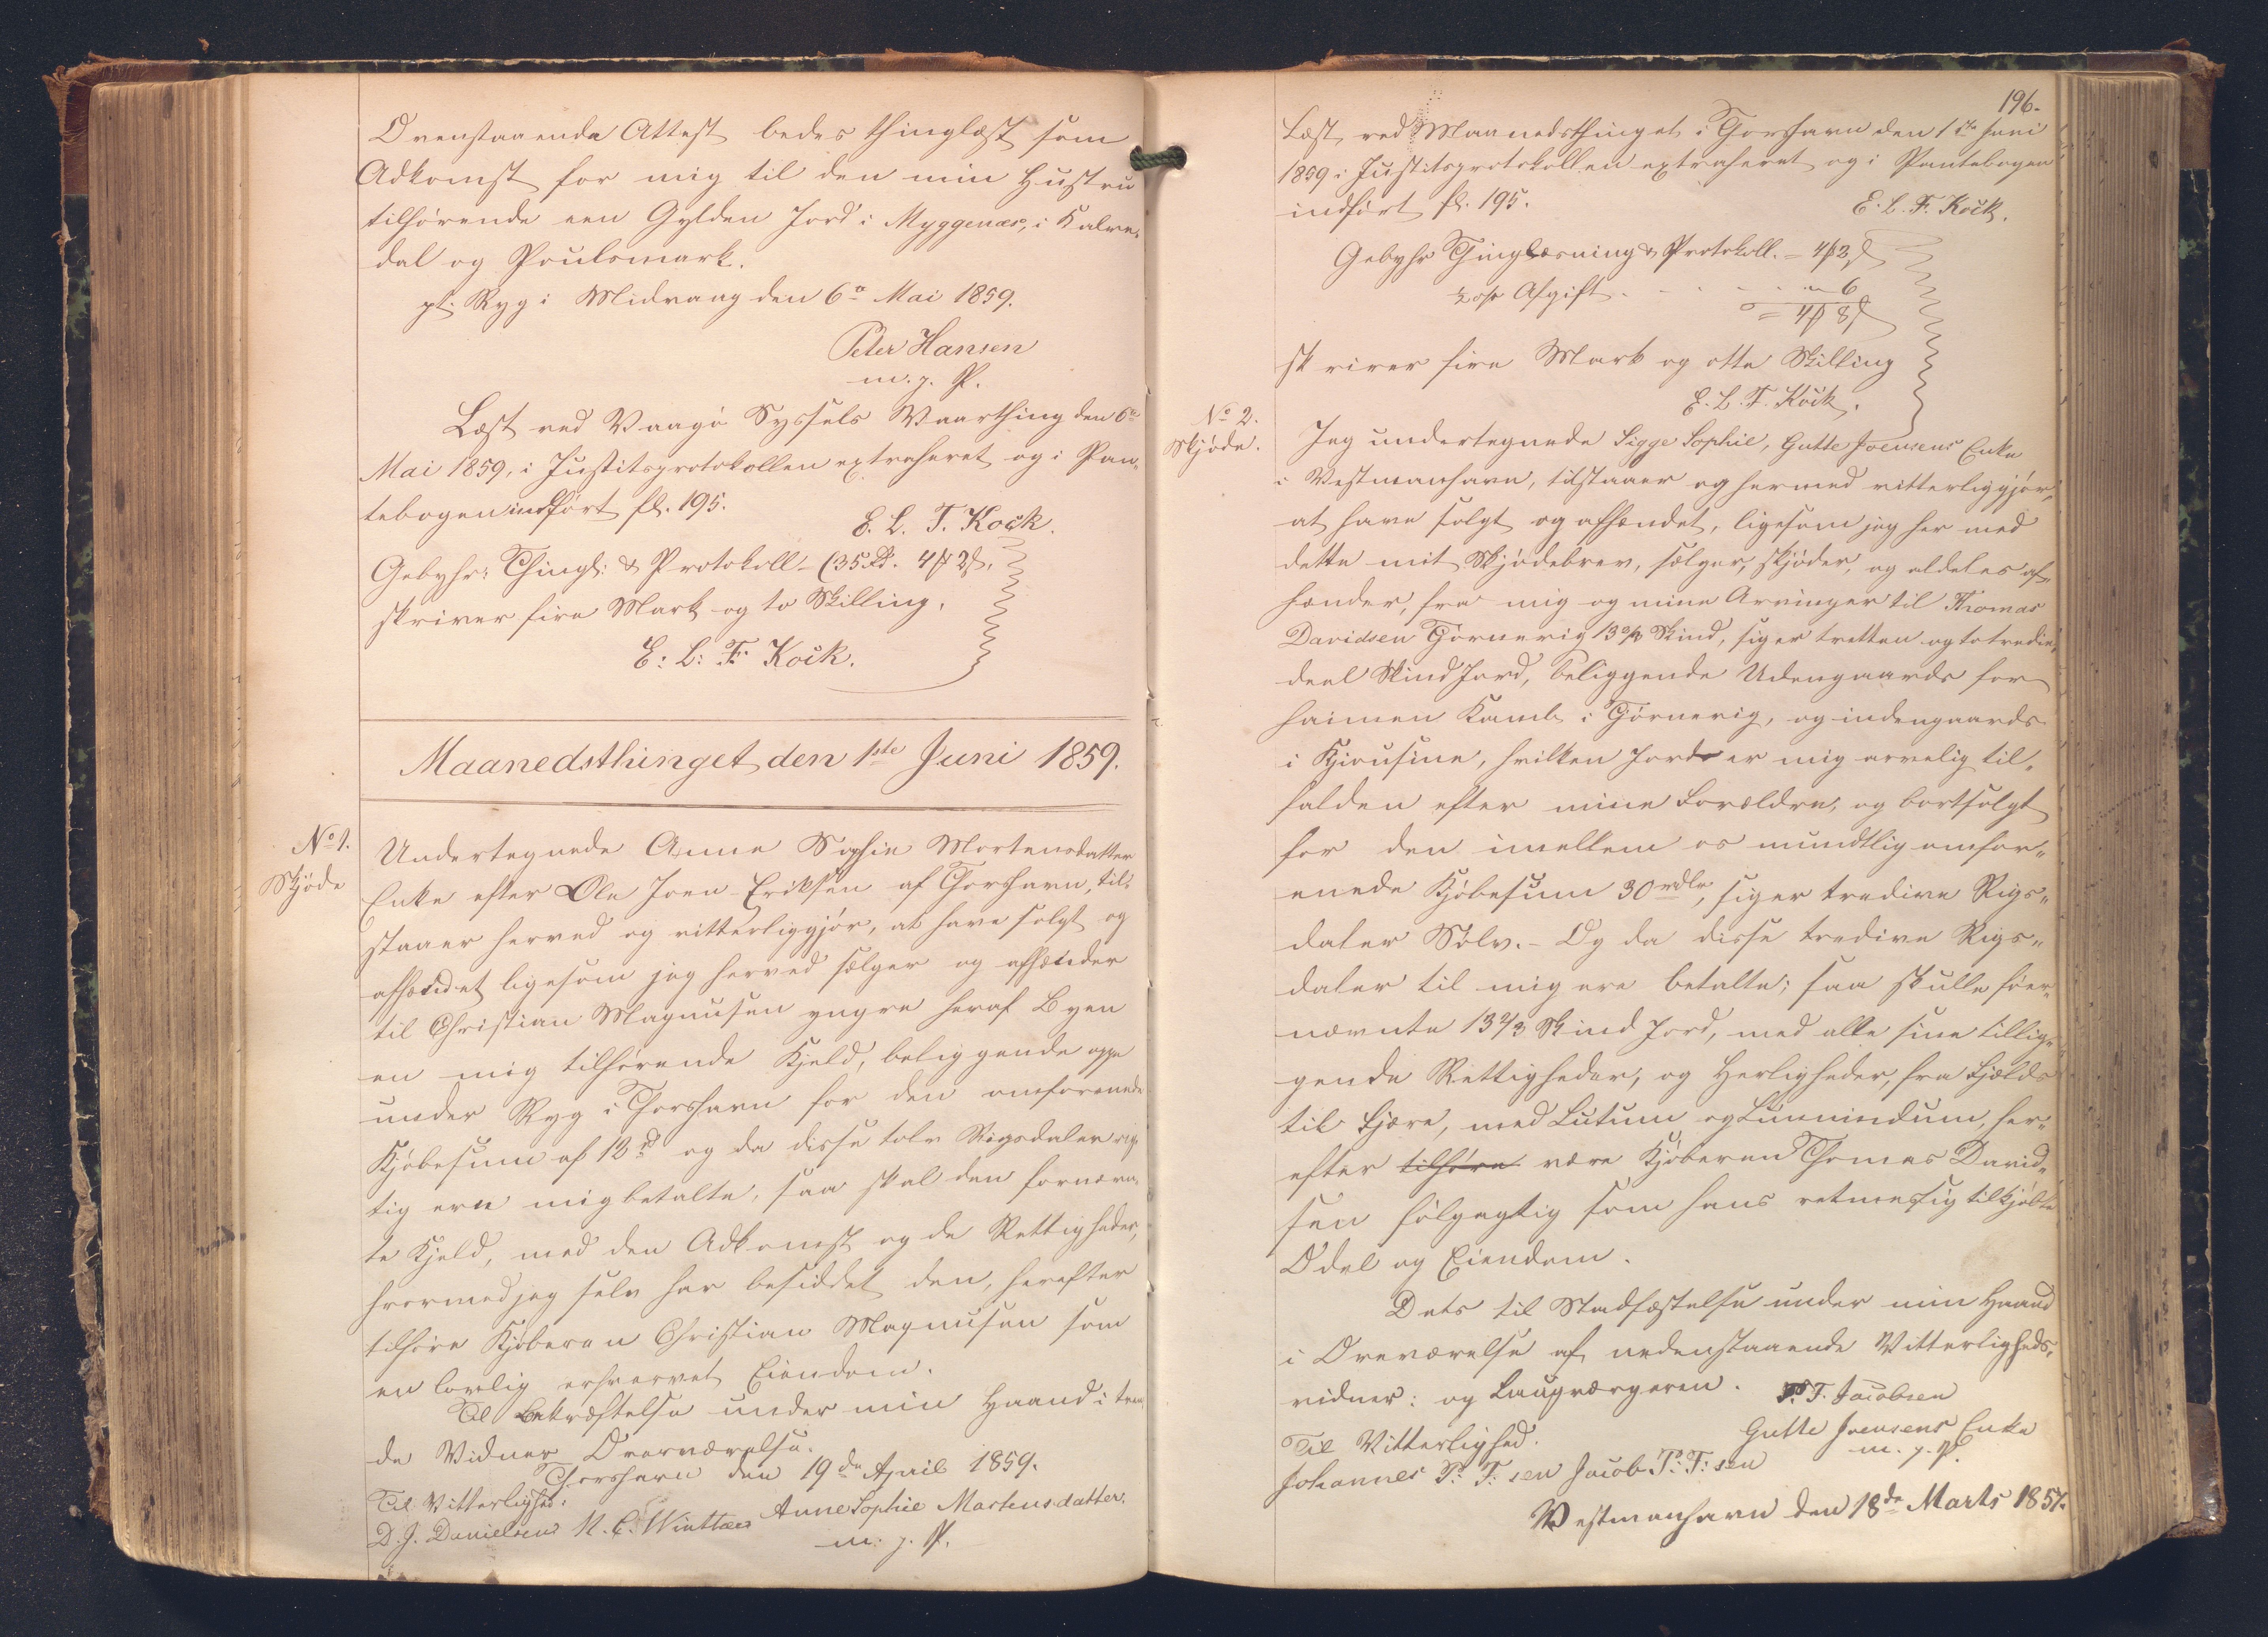 Ovenstaaende Attest bedes thinglæst som
Adkomst for mig til den min Hustru
tilhørende een Gylden Jord i Myggenæs, i Kalve-
dal og Poulsmark.
pt. Ryg i Midvaag den 6te Mai 1859.
Peter Hansen
m. p. P.
Læst ved Vaagø Syssels Vaarthing den 6te
Mai 1859, i Justitsprotokollen extraheret og i Pan-
tebogen indført fl. 195.
E. L. T. Kock.
Gebyhr: Thingl: & Protokoll - (35. 4 ℳ 2 ß.
skriver fire Mark og to Skilling.
E: L: F. Kock.
Maanedsthinget den 1ste Juni 1859.
No 1.
Skjøde
Undertegnede Anne Sophie Mortensdatter
Enke efter Ole Joen Eriksen af Thorshavn, til-
staaer herved og vitterliggjør, at have solgt og
afhændet ligesom jeg herved sælger og afhænder
til Christian Magnusen yngre heraf Byen
en mig tilhørende Kjeld, beliggende oppe
under Ryg i Thorshavn for den omforenede
Kjøbesum af 12 rd og da disse tolv Rigsdaler rig-
tig ere mig betalte, saa skal den fornævn-
te Kjeld, med den Adkomst og de Rettigheder,
hvormed jeg selv har besiddet den, herefter
tilhøre Kjøberen Christian Magnusen som
en lovlig erhvervet Eiendom.
Til Bekræftelse under min Haand i tven-
de Vidners Overværelse.
Thorshavn den 19de April 1859.
Til Vitterlighed:
D. J. Danielsen N. C. Winther Anne Sophie Mortensdatter.
m. p. P.
196.
Læst ved Maanedsthinget i Thorshavn den 1ste Juni
1859 i Justitsprotokollen extraheret og i Pantebogen
indført fl. 195.
E. L. F. Kock.
Gebyhr Thinglæsning & Protokoll. = 4 ℳ 2 ß
½ op Afgift . - - - - " 6
= 4 ℳ 8 ß
skriver fire Mark og otte Skilling
E. L. T. Kock.
No 2.
Skjøde.
Jeg undertegnede Sigge Sophie, Gutte Joensens Enke
i Vestmanhavn, tilstaaer og hermed vitterliggjør,
at have solgt og afhændet, ligesom jeg her med
dette mit Skjødebrev, sælger, skjøder, og aldeles af-
hænder, fra mig og mine Arvinger til Thomas
Davidsen Tjørnevig 13 2/3 Skind, siger tretten og totredie-
deel Skind Jord, beliggende Udengaards for
haimen Kamb i Tjørnevig, og indengaards
i Kjiousine, hvilken Jord er mig arvelig til-
falden efter mine Forældre, og bortsolgt
for den imellem os mundtlig omfor-
enede Kjøbesum 30 rdlr, siger tredive Rigs-
daler Sølv. - Og da disse tredive Rigs-
daler til mig ere betalte; saa skulle foer-
nævnte 13 2/3 Skind Jord, med alle sine tillig-
gende Rettigheder, og Herligheder, fra Fjelds
til Fjære, med Lutum og Lunnindum, her-
efter tilhøre være Kjøberen Thomas David-
sen følgagtig som hans retmessig tilkjøbte
Odel og Eiendom.
Dets til Stadfæstelse under min Haand
i Overværelse af nedenstaaende Vitterligheds-
vidner: og Laugværgeren. P. F. Jacobsen
Til Vitterlighed.
Gutte Joensens Enke
Johannes P: F: sen Jacob P: F: sen
m. p. P.
Vestmanhavn den 18de Marts 1857.